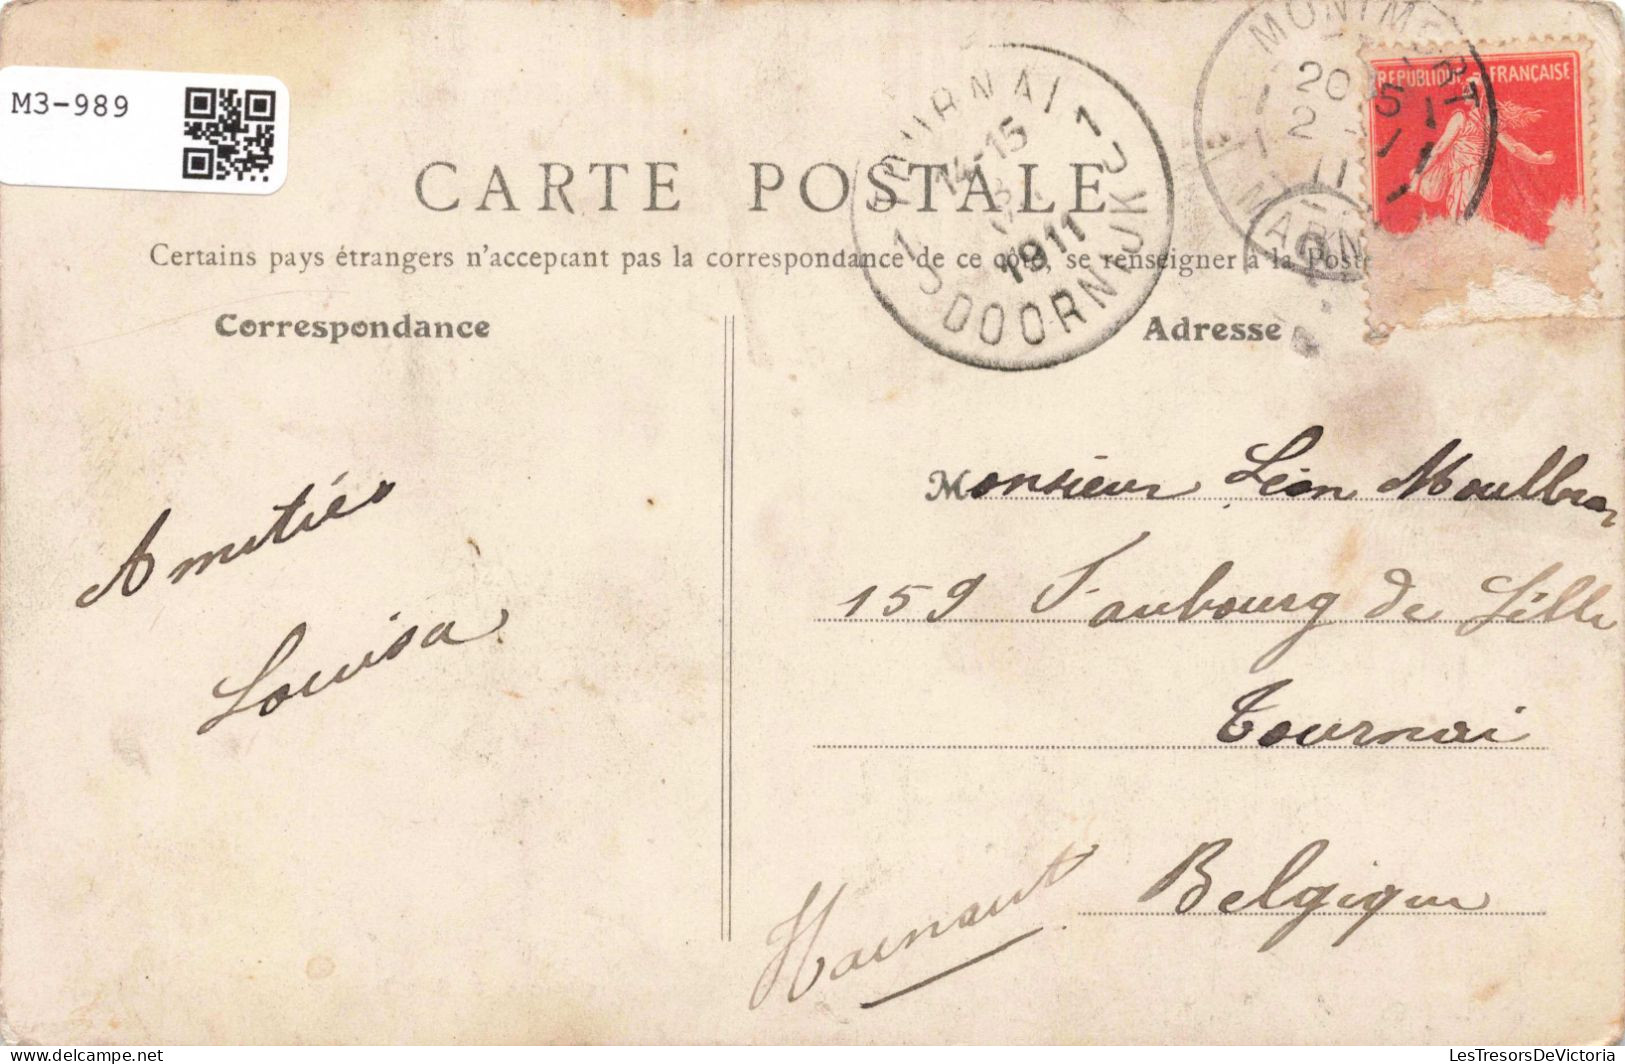 M3-989
MONTMORT
20 5
2
11
MARNE
REPUBLIQUE FRANÇAISE
TOURNAI 1
14-15
1911
1 DOORNIJK 1
CARTE POSTALE
Certains pays étrangers n'acceptant pas la correspondance de ce côté, se renseigner à la Poste
Correspondance
Adresse
Amitiés
Louisa
Monsieur Léon
159 Faubourg de Lille
Tournai
Belgique
Hainaut
delcampe.net
LesTresorsDeVictoria